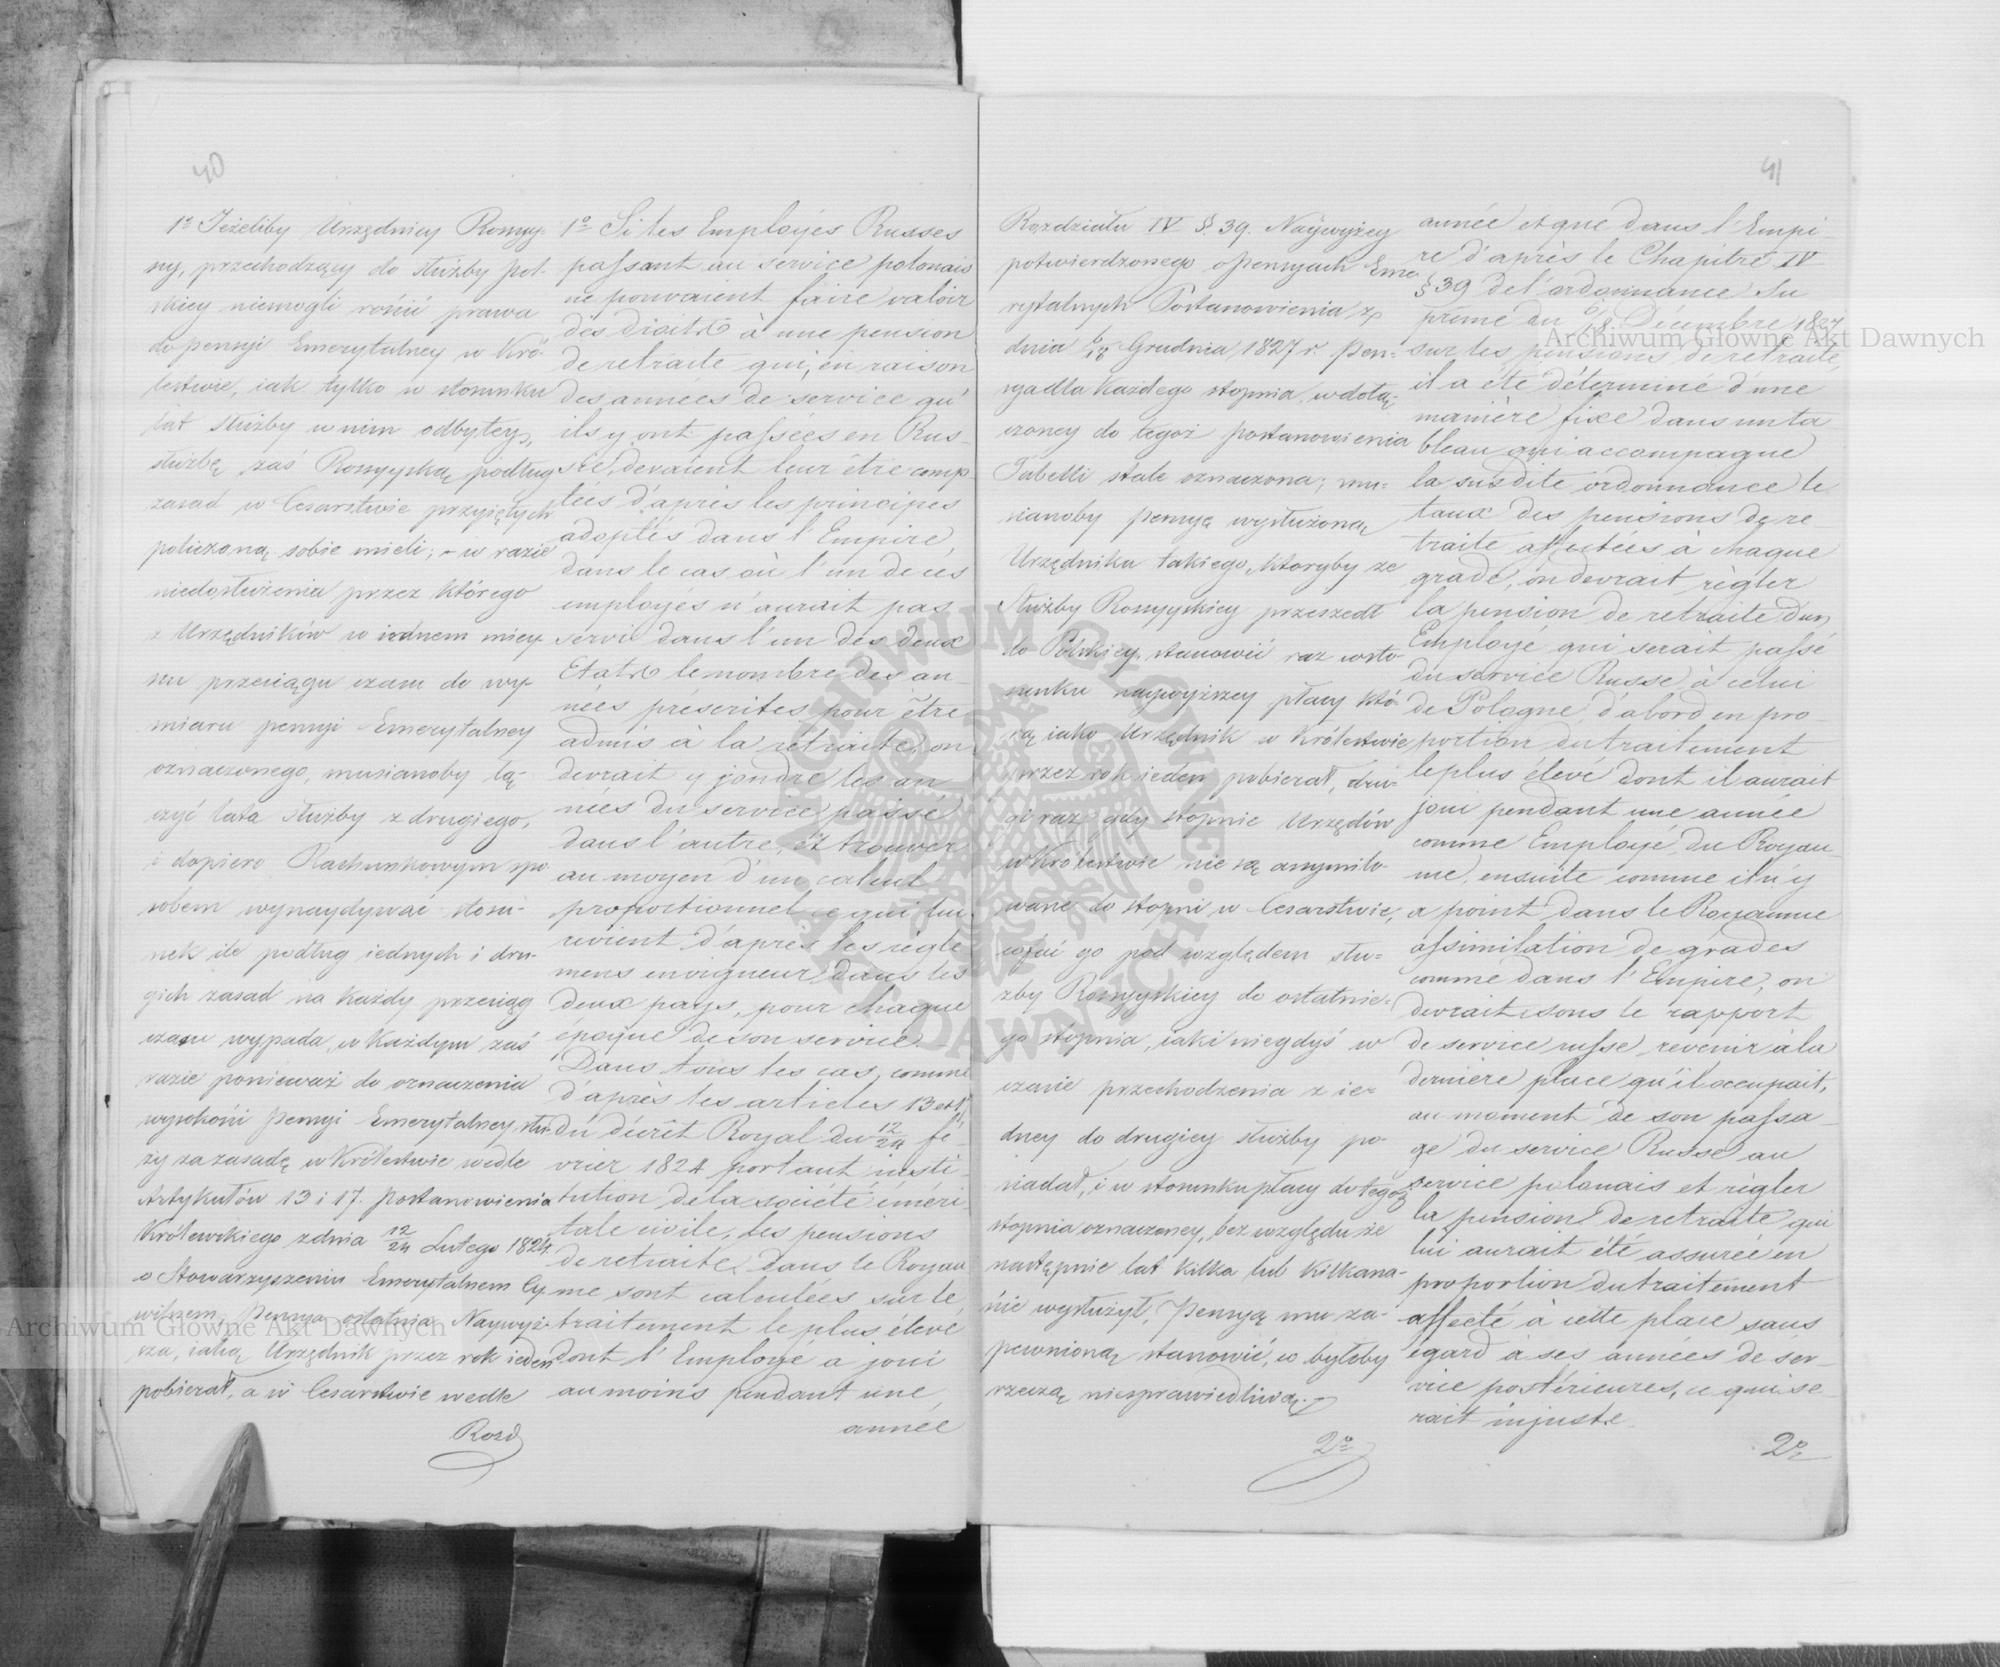 40
1º Jeżeliby Urzędnicy Rossyy-
ny, przechodzący do służby pol-
skiey niemogli rościć prawa
do pensyi Emerytalney w Kró-
lestwie, iak tylko w stosunku
lat służby w nim odbytey,
służbę zaś Rossyyską podług
zasad w Cesarstwie przyiętych
policzoną sobie mieli; – w razie
niedosłużenia przez którego
z Urzędników w iednem miey-
scu przeciągu czasu do wy-
miaru pensyi Emerytalney
oznaczonego, musianoby łą-
czyć lata służby z drugiego,
i dopiero Rachunkowym spo-
sobem wynaydywać stosu-
nek ile podług iednych i dru-
gich zasad na każdy przeciąg
czasu wypada, w każdym zaś
razie ponieważ do oznaczenia
wysokości pensyi Emerytalney słu-
ży za zasadę w Królestwie wedle
Artykułów 13 i 17. postanowienia
Królewskiego z dnia 12/24 Lutego 1824.
o Stowarzyszeniu Emerytalnem Cy-
wilnem, pensya ostatnia Naywyż-
sza, iaką Urzędnik przez rok ieden
pobierał, a w Cesarstwie wedle
Rozd
1º Si les Employés Russes
passant au service polonais
ne pouvaient faire valoir
des droits à une pension
de retraite qui, en raison
des années de service qu'
ils y ont passées en Rus-
sie, devaient leur être comp-
tées d'après les principes
adoptés dans l'Empire,
dans le cas où l'un de ces
employés n'aurait pas
servi dans l'un des deux
Etats le nombre des an-
nées préscrites pour être
admis à la retraite, on
devrait y joindre les an-
nées du service passé
dans l'autre, et trouver
au moyen d'un calcul
proportionnel ce qui lui
revient d'après les règle-
mens en vigueur dans les
deux pays, pour chaque
époque de son service.
Dans tous les cas, comme
d'après les articles 13 et 17
du décrêt Royal du 12/24 fé-
vrier 1824 portant insti-
tution de la société éméri-
tale civile, les pensions
de retraite dans le Royau-
me sont calculées sur le
traitement le plus élevé
dont l'Employé a joui
au moins pendant une
année
41
Rozdziału IV §. 39. Naywyżey
potwierdzonego o pensyach Eme-
rytalnych Postanowienia z
dnia 6/18 Grudnia 1827 r. pen-
sya dla każdego stopnia w dołą-
czoney do tegoż postanowienia
Tabelli stale oznaczona; mu-
sianoby pensyą wysłużoną
Urzędnika takiego, któryby ze
służby Rossyyskiey przeszedł
do Polskiey, stanowić raz w sto-
sunku naywyższey płacy któ-
rą iako Urzędnik w Królestwie
przez rok ieden pobierał, dru-
gi raz gdy stopnie Urzędów
w Królestwie nie są assymilo-
wane do stopni w Cesarstwie,
cofać go pod względem słu-
żby Rossyyskiey do ostatnie-
go stopnia, iaki niegdyś w
czasie przechodzenia z ie-
dney do drugiey służby po-
siadał, i w stosunku płacy do tegoż
stopnia oznaczoney, bez względu że
następnie lat kilka lub kilkana-
ście wysłużył, pensyą mu za-
pewnioną stanowić, co byłoby
rzeczą niesprawiedliwą.
2º
année et que dans l'Empi-
re d'après le Chapitre IV
§ 39 de l'ordonnance Su-
prème du 6/18 Décembre 1827
sur les pensions de retraite,
il a été déterminé d'une
manière fixe dans un ta-
bleau qui accompagne
la susdite ordonnance le
taux des pensions de re-
traite affectées à chaque
grade, on devrait règler
la pension de retraite d'un
Employé qui serait passé
du service Russe à celui
de Pologne, d'abord en pro-
portion du traitement
le plus élevé dont il aurait
joui pendant une année
comme Employé du Royau-
me, ensuite comme il n'y
a point dans le Royaume
assimilation de grades
comme dans l'Empire, on
devrait sous le rapport
de service russe revenir à la
dernière place qu'il occupait,
au moment de son passa-
ge du service Russe au
service polonais et règler
la pension de retraite qui
lui aurait été assurée en
proportion du traitement
affecté à cette place sans
égard à ses années de ser-
vice postérieures, ce qui se-
rait injuste.
2º
Archiwum Główne Akt Dawnych
Archiwum Główne Akt Dawnych
ARCHIWUM GŁÓWNE AKT DAWNYCH